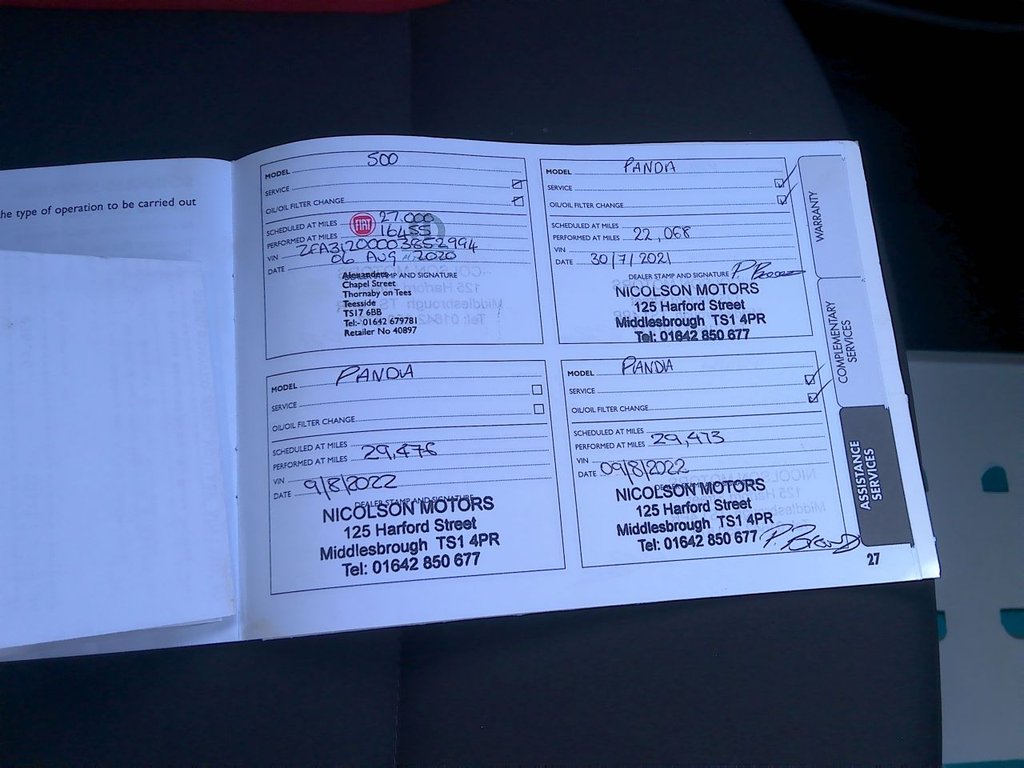 he type of operation to be carried out
MODEL 500
SERVICE
OIL/OIL FILTER CHANGE
SCHEDULED AT MILES 27.000
FIAT
PERFORMED AT MILES 16455
VIN ZFA31200003852994
DATE 06 AUG 2020
DEALER STAMP AND SIGNATURE
Alexanders
Chapel Street
Thornaby on Tees
Teesside
TS17 6BB
Tel:- 01642 679781
Retailer No 40897
MODEL PANDA
SERVICE
OIL/OIL FILTER CHANGE
SCHEDULED AT MILES
PERFORMED AT MILES 22,068
VIN
DATE 30/7/2021
DEALER STAMP AND SIGNATURE
NICOLSON MOTORS
125 Harford Street
Middlesbrough TS1 4PR
Tel: 01642 850 677
MODEL PANDA
SERVICE
OIL/OIL FILTER CHANGE
SCHEDULED AT MILES
PERFORMED AT MILES 29,476
VIN
DATE 9/8/2022
DEALER STAMP AND SIGNATURE
NICOLSON MOTORS
125 Harford Street
Middlesbrough TS1 4PR
Tel: 01642 850 677
MODEL PANDA
SERVICE
OIL/OIL FILTER CHANGE
SCHEDULED AT MILES
PERFORMED AT MILES 29,473
VIN
DATE 09/8/2022
DEALER STAMP AND SIGNATURE
NICOLSON MOTORS
125 Harford Street
Middlesbrough TS1 4PR
Tel: 01642 850 677
WARRANTY
COMPLEMENTARY
SERVICES
ASSISTANCE
SERVICES
27